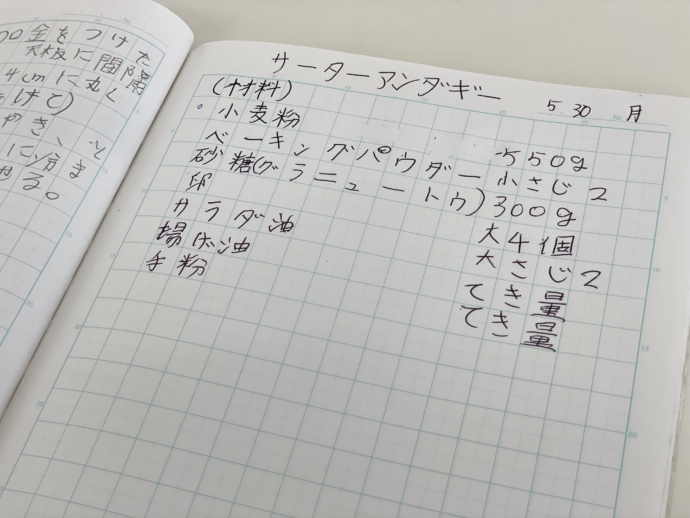 00金をつけた
天板に間隔
4cmに丸く
あげて)
やき、
に分き
る。
サーターアンダギー 5 30 月
(材料)
小麦粉 550g
ベーキングパウダー 小さじ2
砂糖(グラニュートウ) 300g
卵 大4個
サラダ油 大さじ2
揚げ油 てき量
手粉 てき量